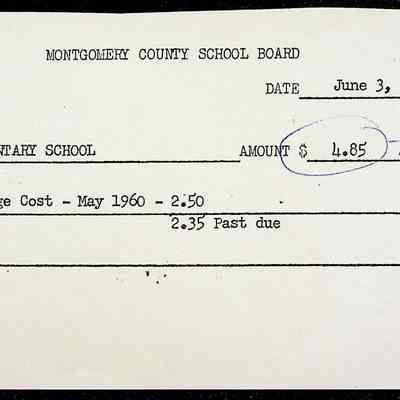 MONTGOMERY COUNTY SCHOOL BOARD
DATE June 3,
SCHOOL AMOUNT $ 4.85
Cost - May 1960 - 2.50
2.35 Past due